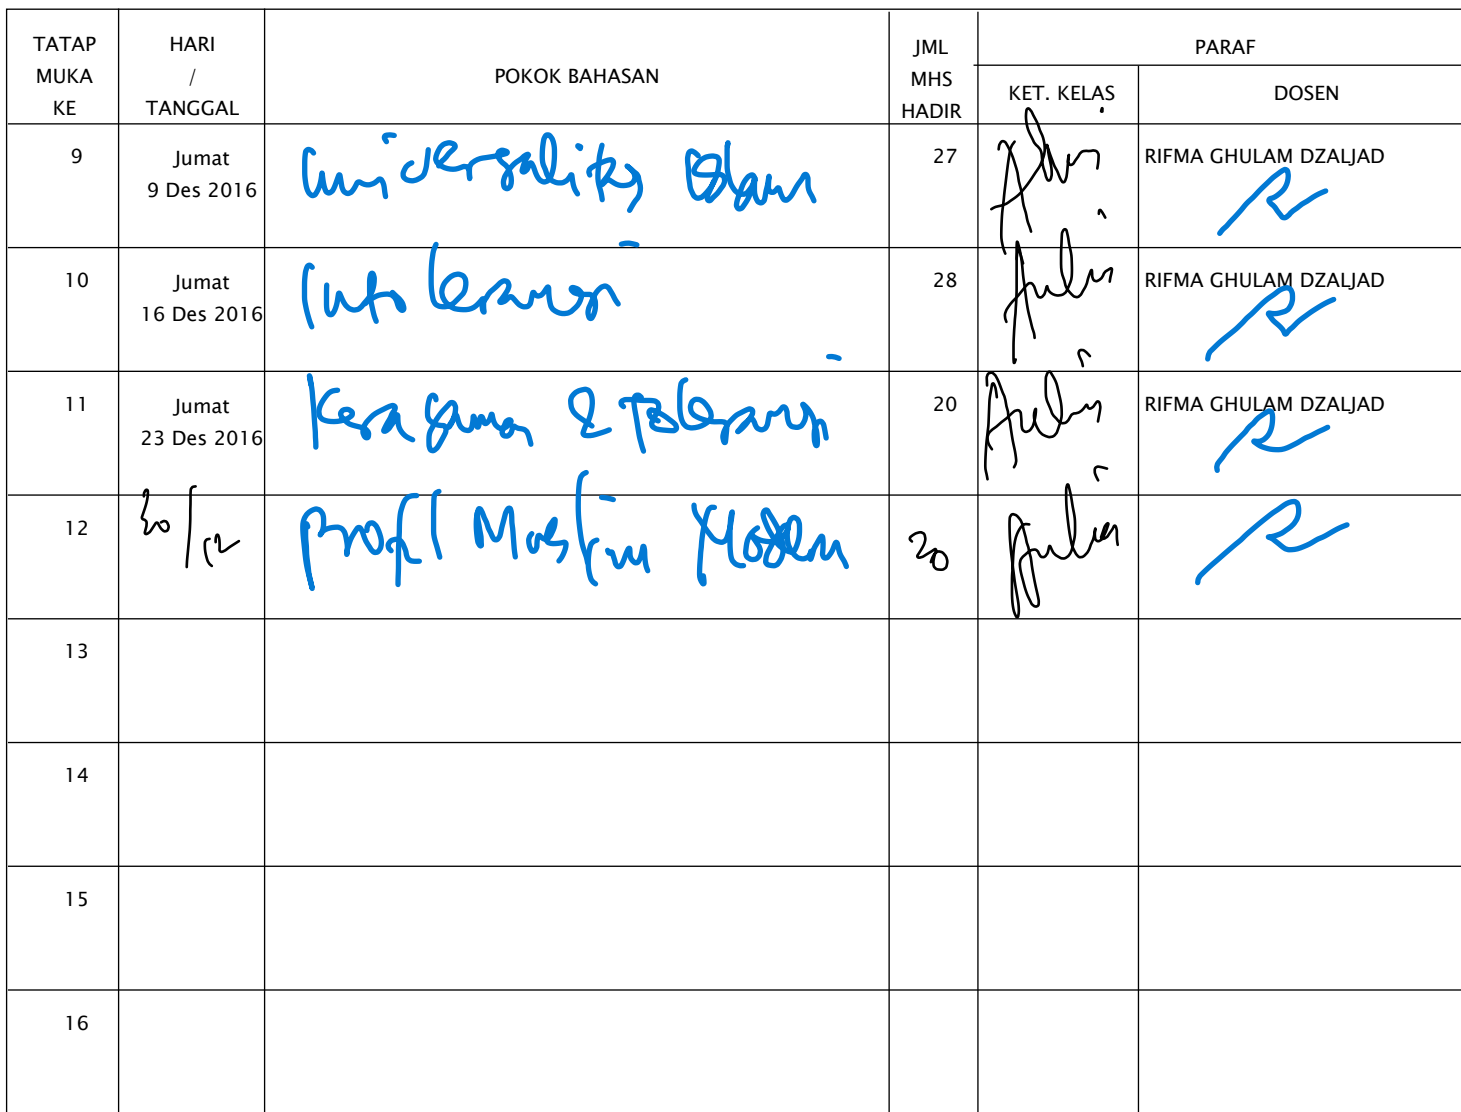 TATAP MUKA KE
HARI / TANGGAL
POKOK BAHASAN
JML MHS HADIR
PARAF
KET. KELAS
DOSEN
9
Jumat
9 Des 2016
Universalitas Islam
27
RIFMA GHULAM DZALJAD
10
Jumat
16 Des 2016
Intoleransi
28
RIFMA GHULAM DZALJAD
11
Jumat
23 Des 2016
Keragaman & Toleransi
20
RIFMA GHULAM DZALJAD
12
30/12
Profil Muslim Modern
20
13
14
15
16